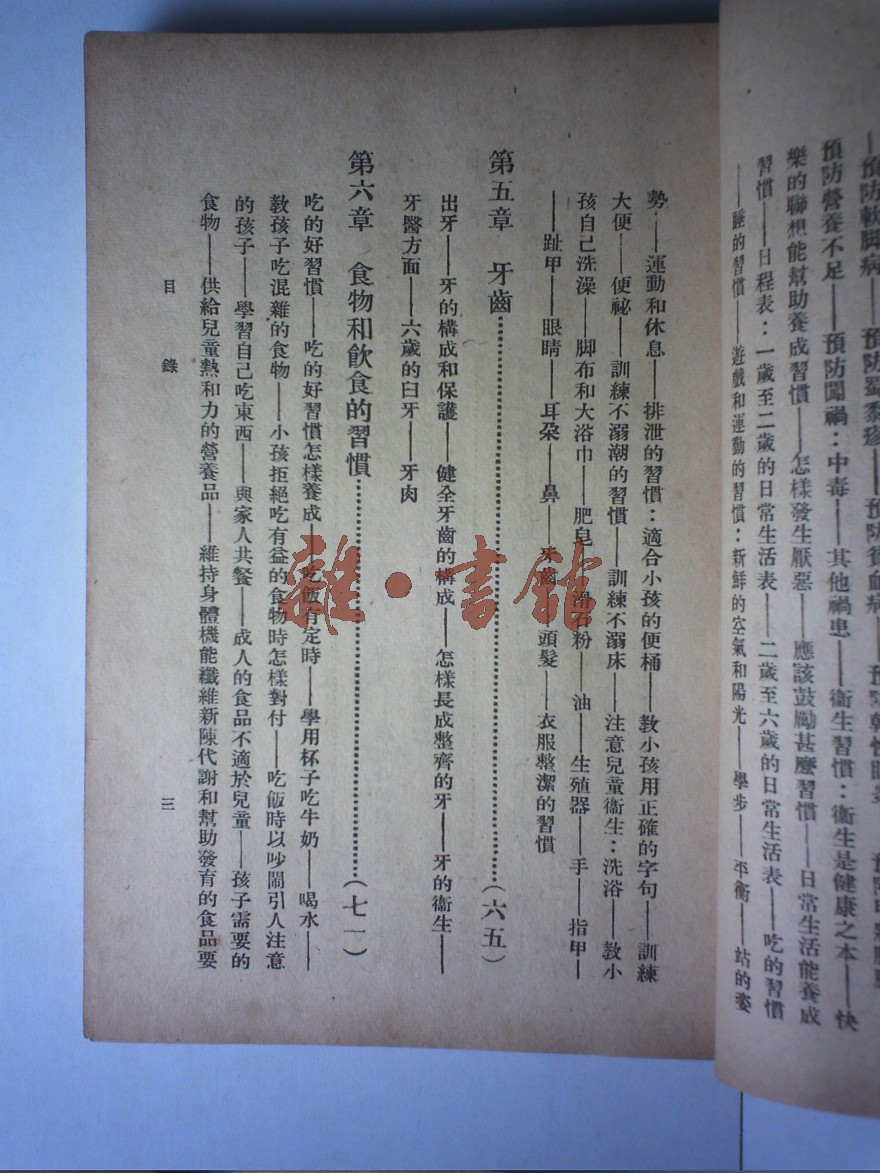 預防軟脚病——預防蜀黍疹——預防貧血病——預防
預防營養不足——預防闖禍：中毒——其他禍患——衞生習慣：衞生是健康之本——快
樂的聯想能幫助養成習慣——怎樣發生厭惡——應該鼓勵甚麼習慣——日常生活能養成
習慣——日程表：一歲至二歲的日常生活表——二歲至六歲的日常生活表——吃的習慣
——睡的習慣——遊戲和運動的習慣：新鮮的空氣和陽光——學步——平衡——站的姿
勢——運動和休息——排泄的習慣：適合小孩的便桶——教小孩用正確的字句——訓練
大便——便祕——訓練不溺潮的習慣——訓練不溺床——注意兒童衞生：洗浴——教小
孩自己洗澡——脚布和大浴巾——肥皂——滑石粉——油——生殖器——手——指甲—
——趾甲——眼睛——耳朶——鼻——牙齒——頭髮——衣服整潔的習慣
第五章　牙齒……（六五）
出牙——牙的構成和保護——健全牙齒的構成——怎樣長成整齊的牙——牙的衞生——
牙醫方面——六歲的臼牙——牙肉
第六章　食物和飲食的習慣……（七一）
吃的好習慣——吃的好習慣怎樣養成——吃飯有定時——學用杯子吃牛奶——喝水——
教孩子吃混雜的食物——小孩拒絕吃有益的食物時怎樣對付——吃飯時以吵鬧引人注意
的孩子——學習自己吃東西——與家人共餐——成人的食品不適於兒童——孩子需要的
食物——供給兒童熱和力的營養品——維持身體機能纖維新陳代謝和幫助發育的食品要
目　錄　三
雜·書館